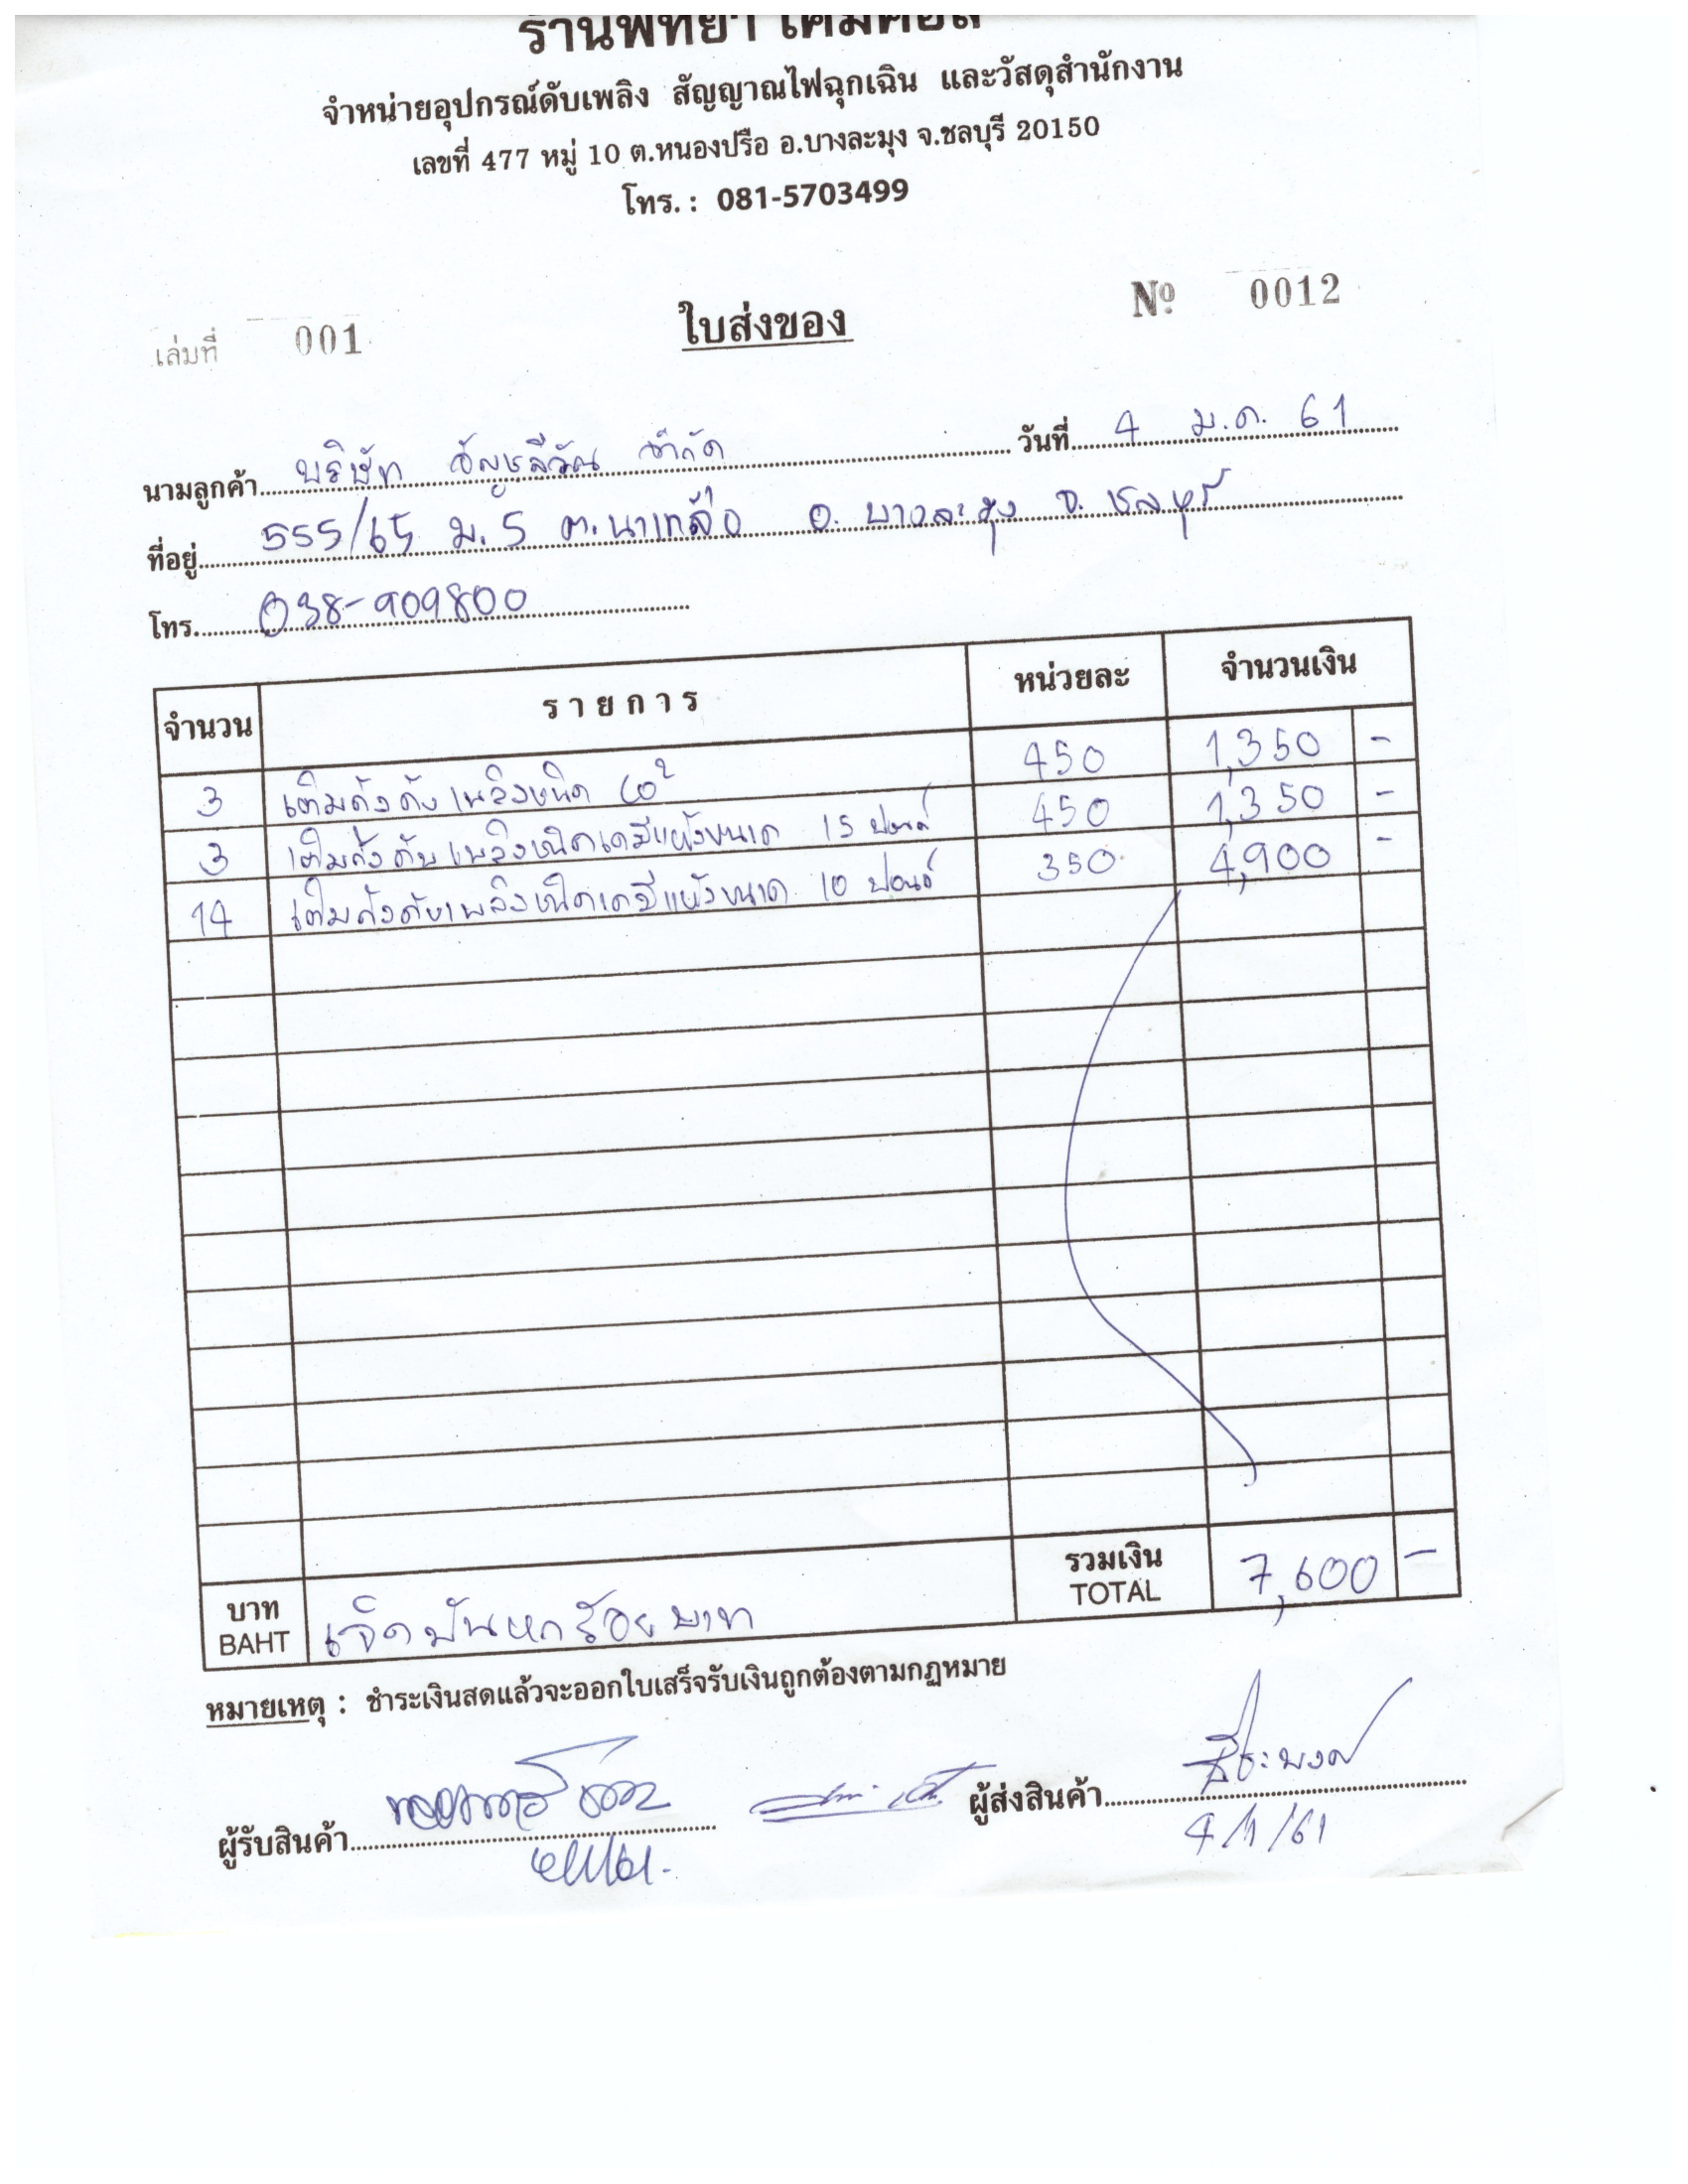 ร้านพัทยา เคมีคอล
จำหน่ายอุปกรณ์ดับเพลิง สัญญาณไฟฉุกเฉิน และวัสดุสำนักงาน
เลขที่ 477 หมู่ 10 ต.หนองปรือ อ.บางละมุง จ.ชลบุรี 20150
โทร. : 081-5703499
เล่มที่ 001 ใบส่งของ Nº 0012
นามลูกค้า บริษัท อัญชลีวัฒ จำกัด วันที่ 4 ม.ค. 61
ที่อยู่ 555/65 ม.5 ต.นาเกลือ อ.บางละมุง จ.ชลบุรี
โทร. 038-909800
จำนวน รายการ หน่วยละ จำนวนเงิน
3 เติมถังดับเพลิงชนิด CO² 450 1,350 -
3 เติมถังดับเพลิงชนิดเคมีแห้งขนาด 15 ปอนด์ 450 1,350 -
14 เติมถังดับเพลิงชนิดเคมีแห้งขนาด 10 ปอนด์ 350 4,900 -
บาท เจ็ดพันหกร้อยบาท รวมเงิน 7,600 -
BAHT TOTAL
หมายเหตุ : ชำระเงินสดแล้วจะออกใบเสร็จรับเงินถูกต้องตามกฏหมาย
ผู้รับสินค้า ผู้ส่งสินค้า ธีระพงศ์
4/1/61